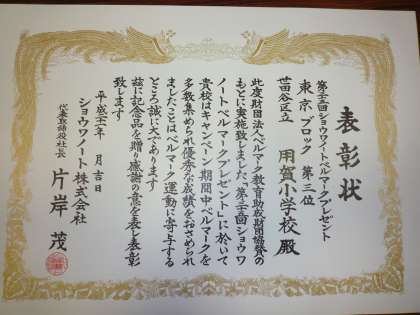 表彰状
第十三回ショウワノートベルマークプレゼント
東京ブロック 第三位
世田谷区立 用賀小学校殿
此度財団法人ベルマーク教育助成財団協賛の
もとに実施致しました「第十三回ショウワ
ノートベルマークプレゼント」に於いて
貴校はキャンペーン期間中ベルマークを
多数集められ優秀な成績をおさめられ
ましたことはベルマーク運動に寄与する
ところ誠に大であります
茲に記念品を贈り感謝の意を表し表彰
致します
平成二十一年 月吉日
ショウワノート株式会社
代表取締役社長 片岸 茂